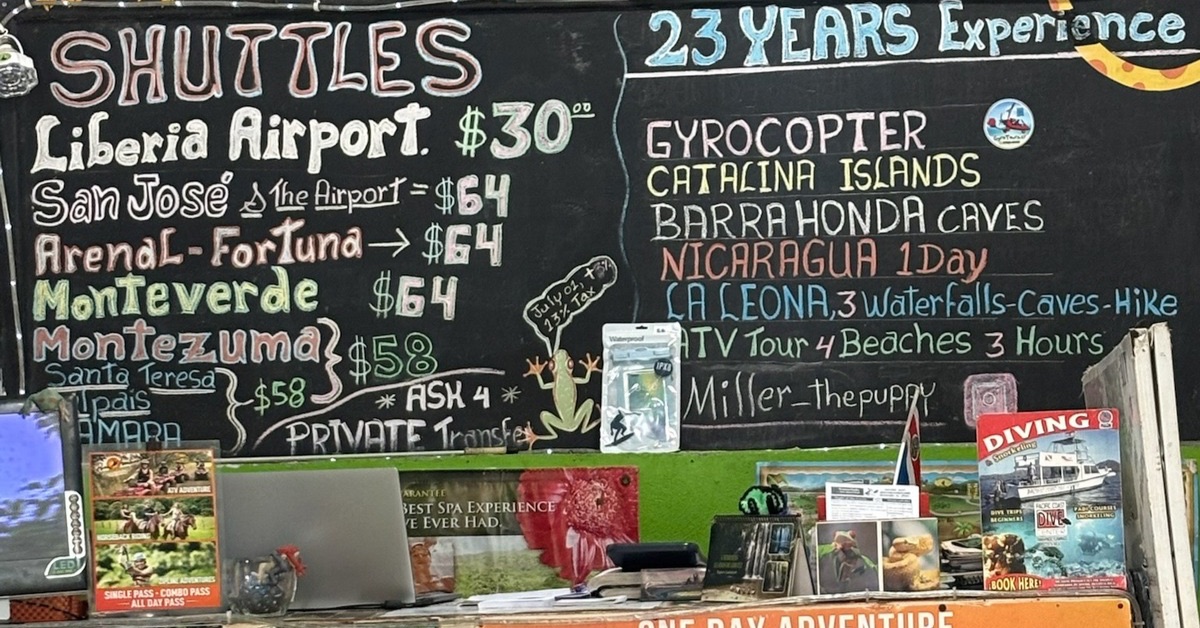 SHUTTLES
Liberia Airport. $30⁰⁰
San José & The Airport = $64
Arenal - Fortuna → $64
Monteverde $64
Montezuma $58
Santa Teresa
$58
* ASK 4 *
PRIVATE Transfe
July 01, +
13% Tax
23 YEARS Experience
GYROCOPTER
CATALINA ISLANDS
BARRA HONDA CAVES
NICARAGUA 1Day
LA LEONA, 3 Waterfalls-Caves-Hike
ATV Tour 4 Beaches 3 Hours
Miller_thepuppy
Waterproof
IPX8
LED
ATV ADVENTURE
HORSEBACK RIDING
SINGLE PASS · COMBO PASS
ALL DAY PASS
BEST SPA EXPERIENCE
VE EVER HAD.
DIVING
Snorkeling
DIVE TRIPS
BEGINNERS
PADI COURSES
SNORKELING
DIVE
BOOK HERE!
ONE DAY ADVENTURE